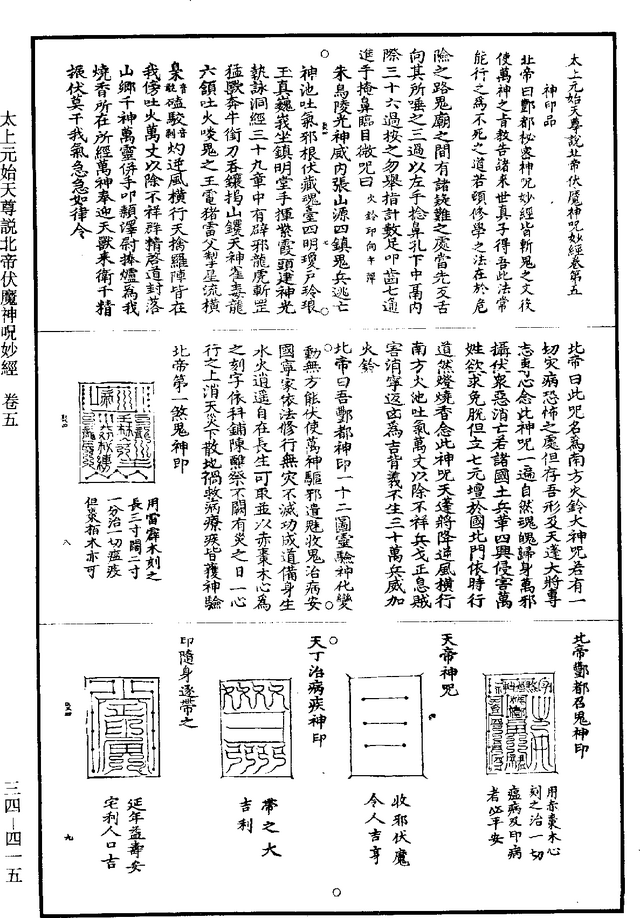 太上元始天尊說北帝伏魔神呪妙經卷第五
神印品
北帝曰酆都秘密神呪妙經皆斬鬼之文役
使萬神之音教告諸末世真子得吾此法常
能行之爲不死之道若頭修學之法在於危
險之路鬼廟之間有諸疑難之處當先反舌
向其所唾之三過以左手捻鼻孔下中鬲內
際三十六過按之勿舉指計數足叩齒七通
進手掩鼻臨目微呪曰 火鈴印向午彈
朱鳥陵光神威內張山源四鎮鬼兵逃亡
神池吐氣邪根伏藏魂臺四明瓊戶玲琅
玉真巍峩坐鎮明堂手揮紫霞頭建神光
執詠洞經三十九章中有辟邪龍虎斬罡
猛獸奔牛銜刀吞鑲揭山钁天神雀毒龍
六領吐火啖鬼之王電猪雷父掣星流橫
梟磕駮灼逆風橫行天擒羅陣皆在
我傍吐火萬丈以除不祥群精啓道封落
山鄉千神萬靈併手叩顙澤尉捧爐爲我
燒香所在所經萬神奉迎天獸來衛千精
振伏莫干我氣急急如律令
北帝曰此呪名爲南方火鈴大神呪若有一
切灾病恐怖之處但存吾形及天蓬大將專
志勇心念此神呪一遍自然魂魄歸身萬邪
攝伏衆惡消亡若諸國土兵革四興侵害萬
姓欲求免脫但立七元壇於國北門依時行
道然燈燒香念此神呪天蓬將降逆風橫行
南方火池吐氣萬丈以除不祥兵戈正息賊
害消寧返凶爲吉背義不生三十萬兵威加
火鈴
北帝曰吾酆都神印一十二圖靈驗神化變
動無方能伏使萬神驅邪遣魅收鬼治病安
國寧家依法修行無灾不滅功成道備身生
水火逍遥自在長生可取並以赤棗木心爲
之刻字依科鋪陳醮祭不闕有灾之日一心
行之上消天灾下散地禍救病療疾皆獲神驗
北帝第一煞鬼神印
用雷霹木刻之
長三寸闊二寸
一分治一切瘟疫
但棗栢木亦可
八
北帝酆都召鬼神印
用赤棗木心
刻之治一切
瘟病及印病
者必平安
天帝神呪
收邪伏魔
令人吉亨
天丁治病疾神印
帶之大
吉利
印隨身逐帶之
延年益壽安
宅利人口吉
九
太上元始天尊説北帝伏魔神呪妙經 卷五
三四—四一五